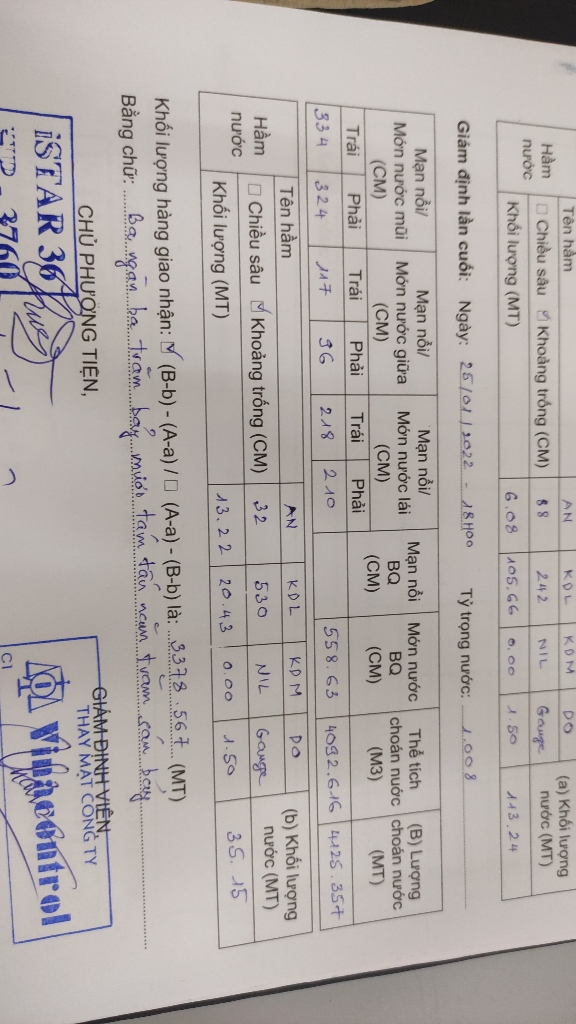 Tên hầm AN KDL KDM DO (a) Khối lượng nước (MT)
Hầm nước ☐ Chiều sâu ☑ Khoảng trống (CM) 88 242 NIL Gauge
Khối lượng (MT) 6.08 105.66 0.00 1.50 113.24
Giám định lần cuối: Ngày: 25/01/2022 - 18H00 Tỷ trọng nước: 1.008
Mạn nổi/ Món nước mũi (CM) Mạn nổi/ Món nước giữa (CM) Mạn nổi/ Món nước lái (CM) Mạn nổi BQ (CM) Món nước BQ (CM) Thể tích choán nước (M3) (B) Lượng choán nước (MT)
Trái Phải Trái Phải Trái Phải
334 324 117 96 218 210 558.63 4092.616 4125.357
Tên hầm AN KDL KDM DO (b) Khối lượng nước (MT)
Hầm nước ☐ Chiều sâu ☑ Khoảng trống (CM) 32 530 NIL Gauge
Khối lượng (MT) 13.22 20.43 0.00 1.50 35.15
Khối lượng hàng giao nhận: ☑ (B-b) - (A-a) / ☐ (A-a) - (B-b) là: 3378.567 (MT)
Bằng chữ: Ba ngàn ba trăm bảy mươi tám tấn năm trăm sáu bảy
CHỦ PHƯƠNG TIỆN, GIÁM ĐỊNH VIÊN
THAY MẶT CÔNG TY
iSTAR 36 Vinacontrol
3760 C1